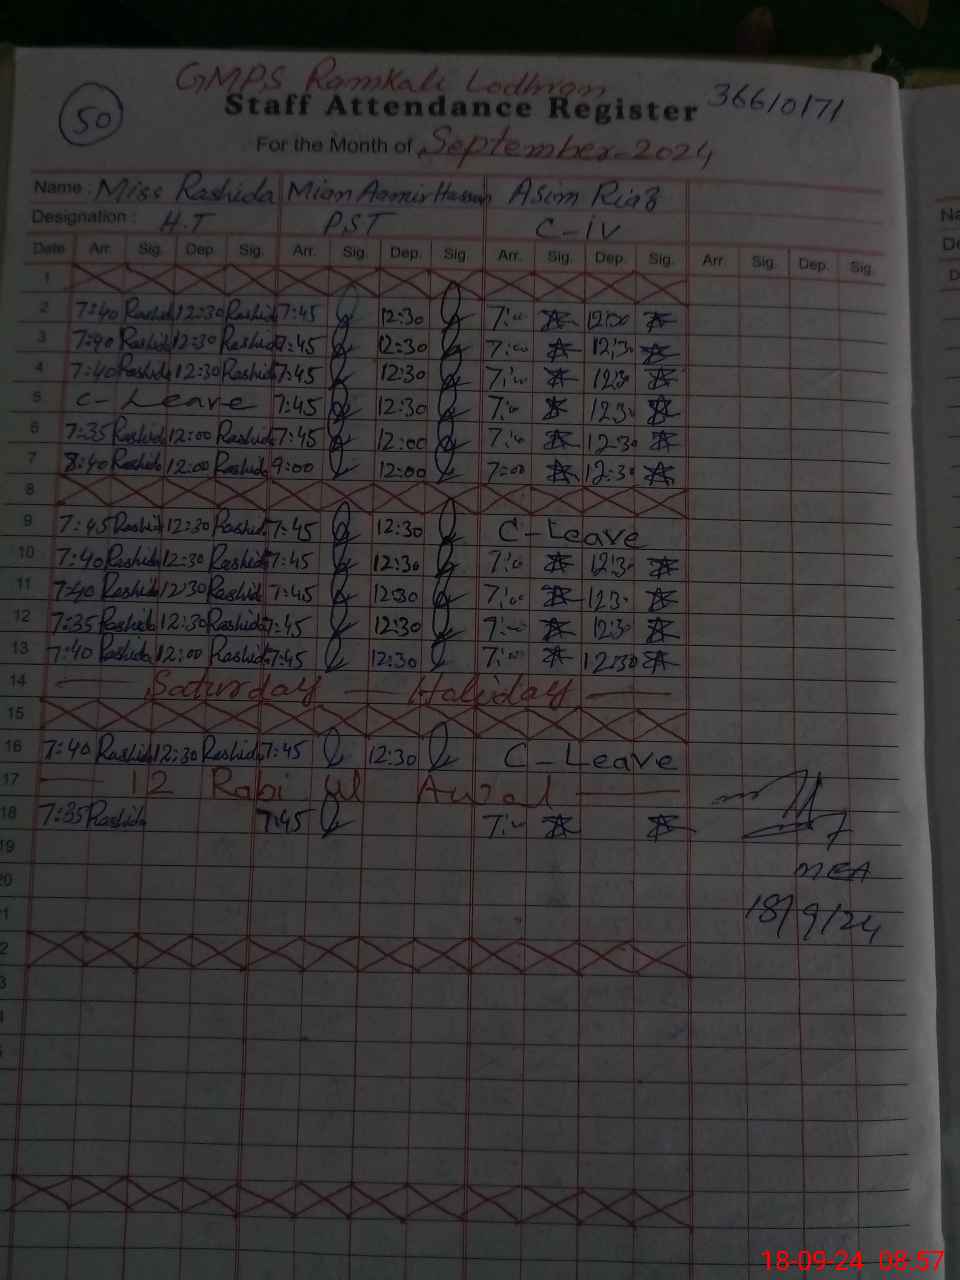 GMPS Ramkali Lodhran
50
Staff Attendance Register 36610171
For the Month of September-2024
Name : Miss Rashida Mian Aamir Hassan Asim Riaz Na
Designation : H.T PST C-iv De
Date Arr. Sig. Dep. Sig. Arr. Sig. Dep. Sig. Arr. Sig. Dep. Sig. Arr. Sig. Dep. Sig. D
1
2 7:40 Rashida 12:30 Rashida 7:45 12:30 7:00 12:00
3 7:40 Rashida 12:30 Rashida 7:45 12:30 7:00 12:30
4 7:40 Rashida 12:30 Rashida 7:45 12:30 7:00 12:30
5 C- Leave 7:45 12:30 7:00 12:30
6 7:35 Rashida 12:00 Rashida 7:45 12:00 7:00 12:30
7 8:40 Rashida 12:00 Rashida 9:00 12:00 7:00 12:30
8
9 7:45 Rashida 12:30 Rashida 7:45 12:30 C-Leave
10 7:40 Rashida 12:30 Rashida 7:45 12:30 7:00 12:30
11 7:40 Rashida 12:30 Rashida 7:45 12:30 7:00 12:30
12 7:35 Rashida 12:30 Rashida 7:45 12:30 7:00 12:30
13 7:40 Rashida 12:00 Rashida 7:45 12:30 7:00 12:30
14 Saturday Holiday
15
16 7:40 Rashida 12:30 Rashida 7:45 12:30 C-Leave
17 12 Rabi ul Awal
18 7:35 Rashida 7:45 7:00
19
20 MEA
1 18/9/24
2
3
18-09-24 08:57